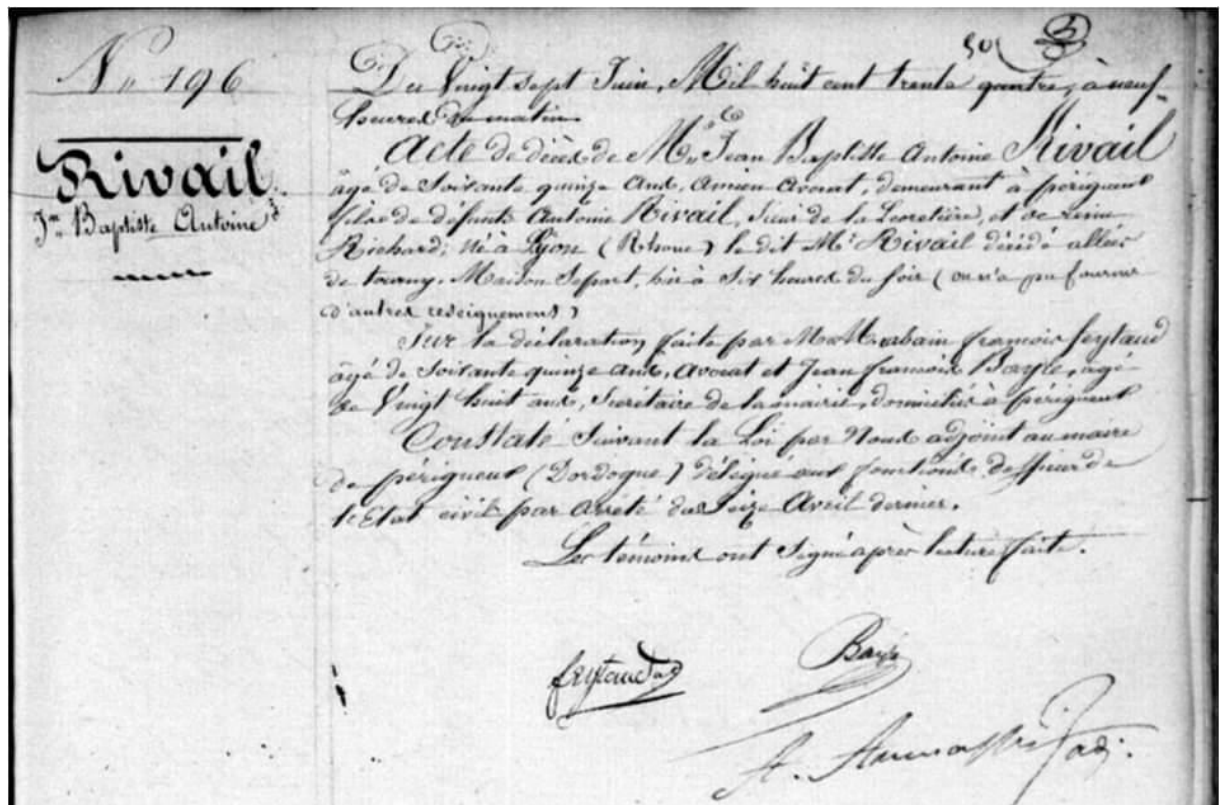 50
N° 196
Rivail
Jn Baptiste Antoine
Du Vingt sept Juin, Mil huit cent trente quatre, à neuf
heures du matin.
Acte de décès de Mr Jean Baptiste Antoine Rivail
âgé de Soixante quinze ans, ancien avocat, demeurant à périgueux
fils de défunts Antoine Rivail, Sieur de la et de
Richard; né à Lyon (Rhone) le dit Mr Rivail décédé allées
de tourny, Maison Separt, hier à Six heures du soir (on n'a pu fournir
d'autres renseignements)
Sur la déclaration faite par françois feytaud
âgé de Soixante quinze ans, avocat et Jean françois Bayle, agé
de Vingt huit ans, Secrétaire de la mairie, domiciliés à périgueux
Constaté Suivant la Loi par Nous adjoint au maire
de périgueux (Dordogne) délégué aux fonctions d'officier de
l'Etat civil par arrêté du Seize Avril dernier.
Les témoins ont Signé après lecture faite.
feytaud
Bayle
adj.